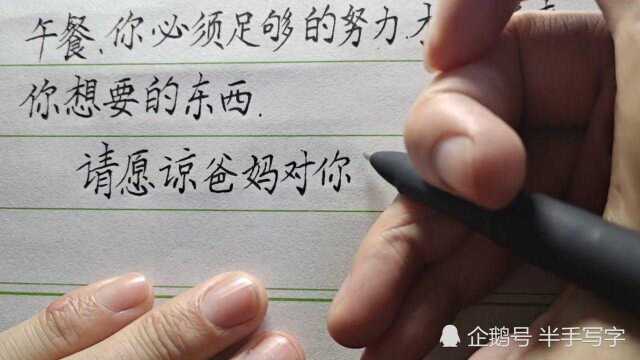 午餐.你必须足够的努力.才
你想要的东西.
请愿谅爸妈对你
企鹅号 半手写字